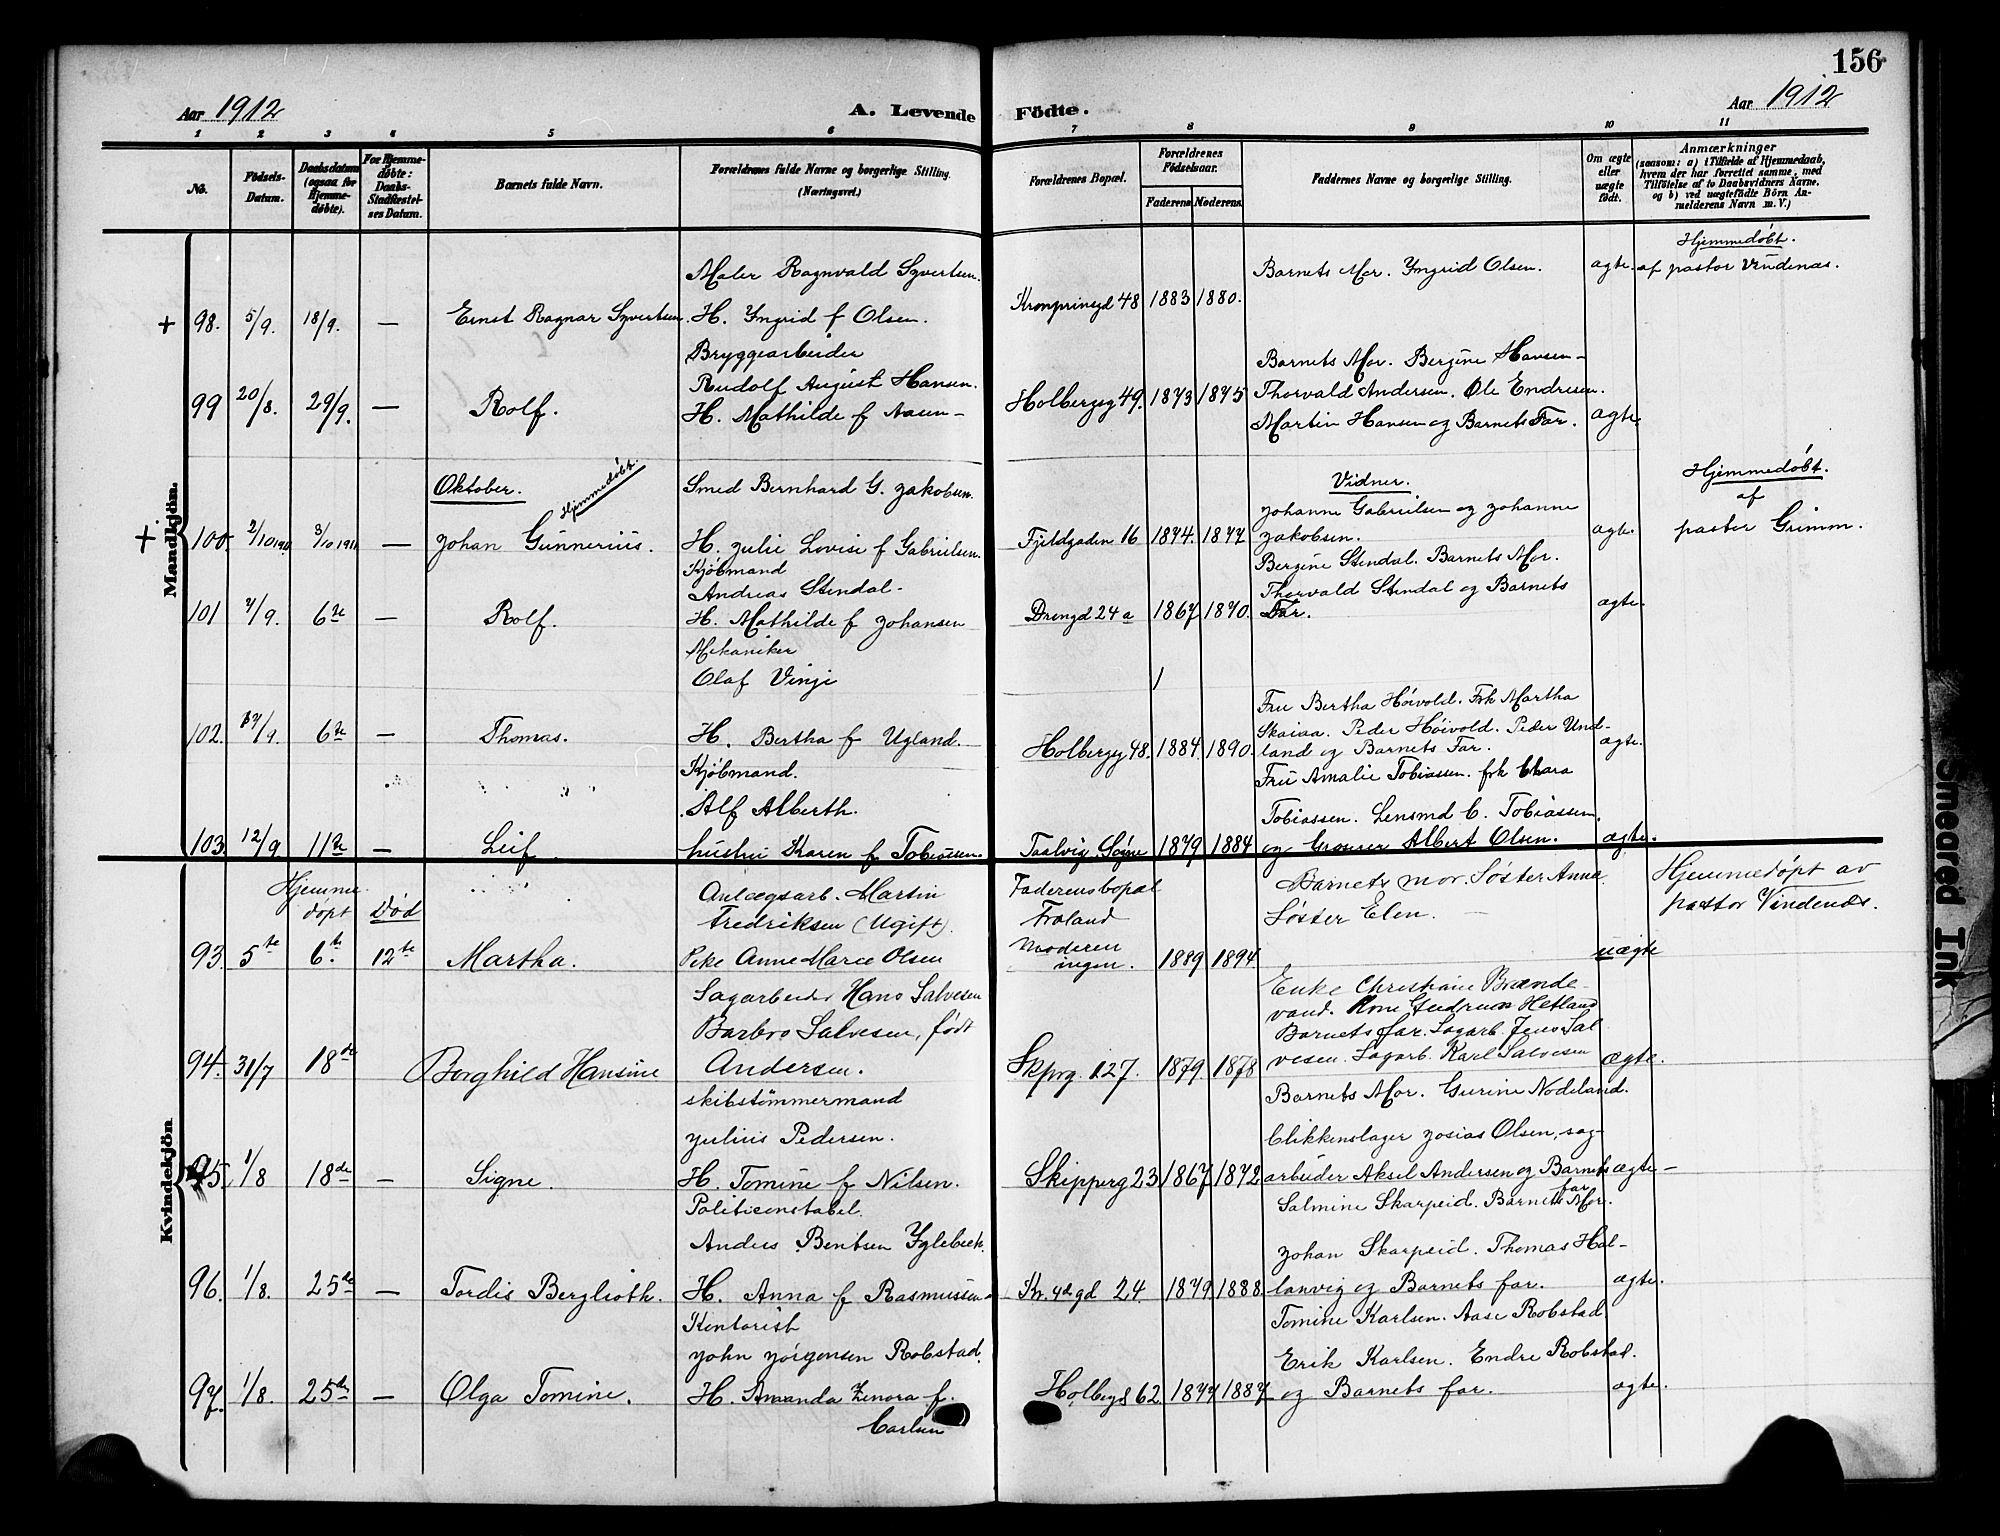 156
Aar 1912
A. Levende Födte.
Aar 1912
1 2 3 4 5 6 7 8 9 10 11
No.
Födsels-
Datum.
Daabsdatum
(ogsaa for
Hjemme-
döbte).
For Hjemme-
döbte:
Daabs-
Stadfæstel-
ses Datum.
Barnets fulde Navn.
Forældrenes fulde Navne og borgerlige Stilling.
(Næringsvei.)
Forældrenes Bopæl.
Forældrenes
Fødselsaar.
Faderens Moderens
Faddernes Navne og borgerlige Stilling.
Om ægte
eller
uægte
födt.
Anmærkninger
(saasom: a) i Tilfælde af Hjemmedaab,
hvem der har forrettet samme, med
Tilföielse af to Daabsvidners Navne.
og b) ved uægtefödte Börn An-
melderens Navn m. V.)
Mandkjön.
+ 98. 5/9. 18/9. — Ernst Ragnar Syvertsen
Maler Ragnvald Syvertsen.
H. Yngrid f Olsen.
Kronprinsgd 48 1883 1880.
Barnets Mor. Yngrid Olsen.
ægte.
Hjemmedøbt.
af pastor Vindenæs.
99 20/8. 29/9. — Rolf.
Bryggearbeider
Rudolf August Hansen.
H. Mathilde f Aasen —
Holbergsg 49. 1873 1875
Barnets Mor. Bergine Hansen —
Thorvald Andersen. Ole Endresen.
Martin Hansen og Barnets Far.
ægte.
Oktober.
Hjemmedøbt.
+ 100. 2/10 1911 3/10 1911 — Johan Gunnerius.
Smed Bernhard G. Jakobsen
H. Julie Lovise f Gabrielsen.
Fjeldgaden 16 1874. 1877
Vidner.
Johanne Gabrielsen og Johanne
Jakobsen.
ægte.
Hjemmedøbt.
af
pastor Grimm.
101 7/9. 6te — Rolf.
Kjøbmand
Andreas Stendal.
H. Mathilde f Johansen
Drengd 24 a 1867 1870.
Bergine Stendal. Barnets Mor.
Thorvald Stendal og Barnets
Far.
ægte.
102. 17/9. 6te — Thomas.
Mekaniker
Olaf Vinje
H. Bertha f Ugland.
Holbergsg 48. 1884 1890.
Fru Bertha Høivold. Frk Martha
Skaiaa. Peder Høivold. Peder Und-
land og Barnets Far.
ægte.
103. 12/9 11te — Leif.
Kjøbmand.
Alf Alberth.
hustru Karen f Tobiassen.
Taalvig. Søgne 1879 1884
Fru Amalie Tobiassen. frk Clara
Tobiassen. Lensmd C. Tobiassen.
og Grosserer Albert Olsen.
ægte.
Kvindekjön
Hjemme-
døpt Død
93. 5te 6te. 12te Martha.
Anlægsarb. Martin
Fredriksen (Ugift).
Pike Anne Marie Olsen
Faderens bopæl
Froland
Moderen
ingen. 1889 1894
Barnets mor. Søster Anna
Søster Elen.
uægte
Hjemmedøpt av
pastor Vindenæs.
94. 31/7 18de Borghild Hansine
Sagarbeider Hans Salvesen
Barbro Salvesen, født
Andersen.
Skprg. 127. 1879 1878
Enke Christiane Brænde-
vand. Kone Gudrun Hetland
Barnets far. Sagarb. Jens Sal
vesen. Sagarb. Karl Salvesen
ægte.
95. 1/8 18de — Signe.
skibstømmermand
Julius Pedersen.
H. Tomine f Nilsen.
Skipperg 23 1867 1872
Barnets Mor. Gurine Nodeland.
blikkenslager Josias Olsen, sag-
arbeider Aksel Andersen og Barnets
far
ægte —
96. 1/8. 25de — Tordis Bergliot.
Politikonstabel.
Anders Bentsen Yglebæk.
H. Anna f Rasmussen
Kr. 4de gd 24. 1879 1888
Salmine Skarpeid. Barnets Mor.
Johan Skarpeid. Thomas Hal-
lanvig og Barnets far.
ægte.
97. 1/8. 25de — Olga Tomine.
Kontorist
John Jørgensen Robstad.
H. Amanda Zenora f.
Carlsen
Holbergd 62. 1877 1887
Tomine Karlsen. Aase Robstad.
Erik Karlsen. Endre Robstad.
og Barnets far.
ægte.
Smeared Ink